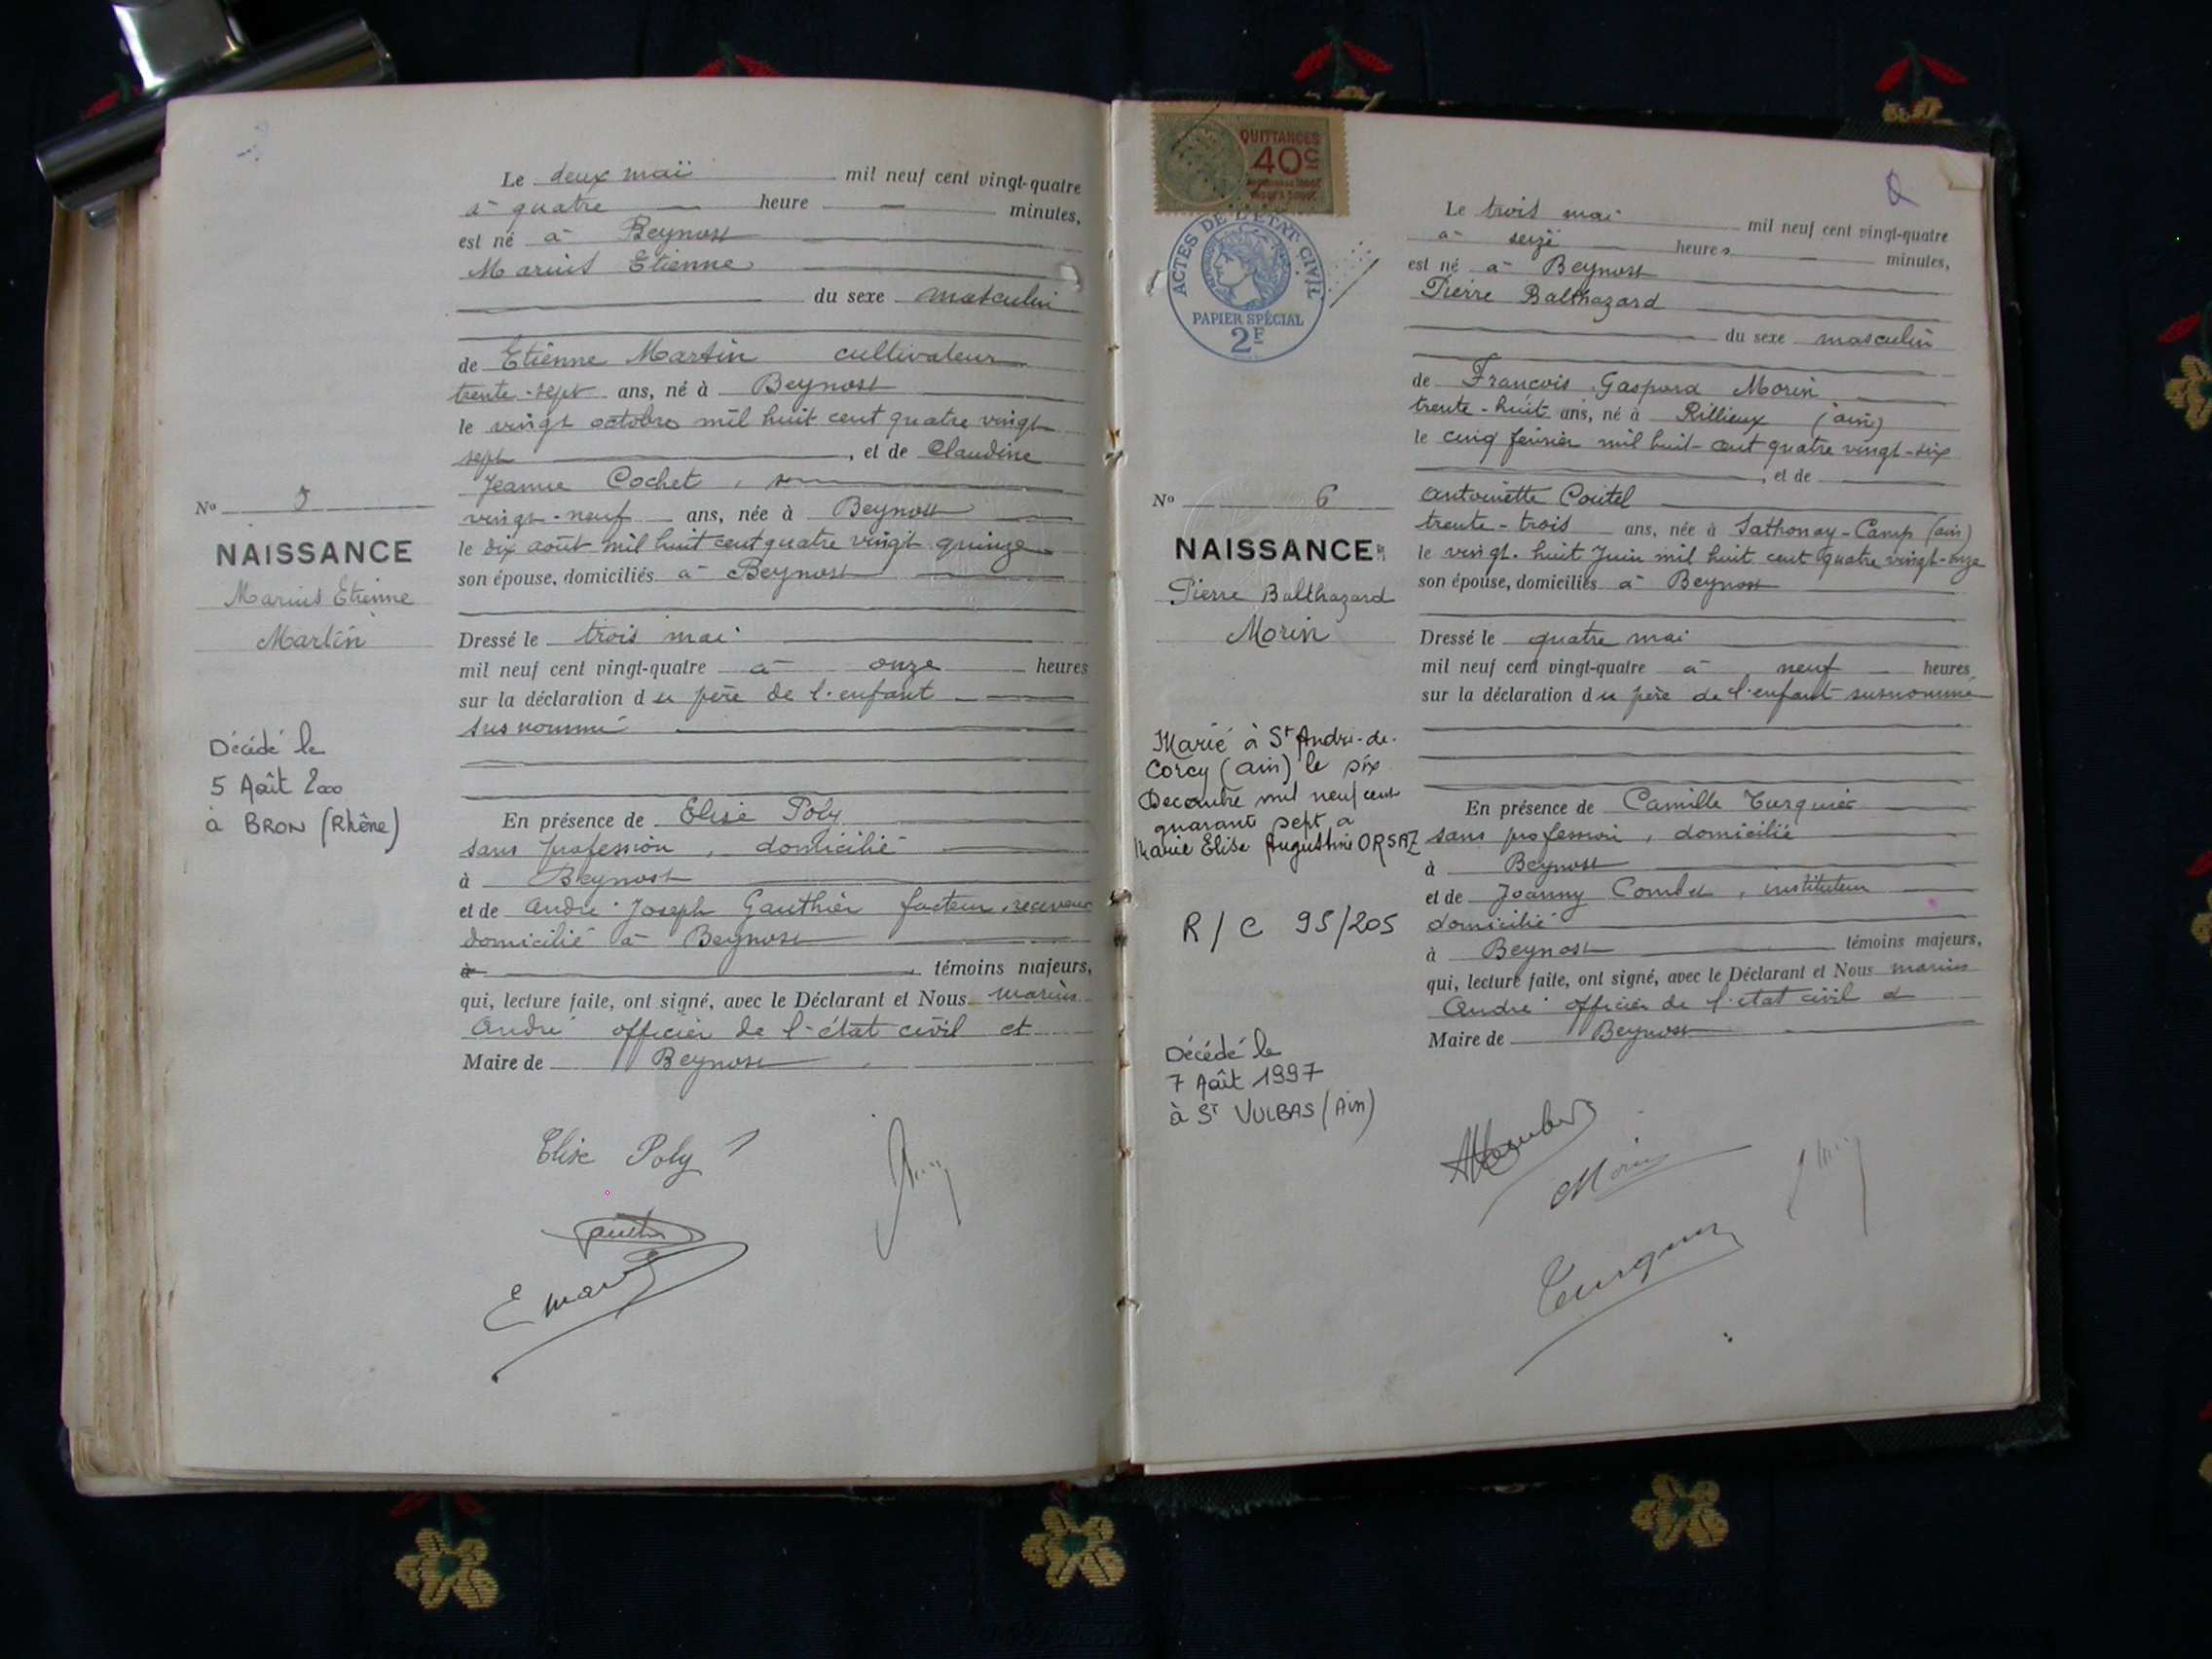 Le deux mai mil neuf cent vingt-quatre
à quatre heure minutes,
est né à Beynost
Marius Etienne
du sexe masculin
de Etienne Martin cultivateur
trente-sept ans, né à Beynost
le vingt octobre mil huit cent quatre vingt
sept, et de Claudine
Jeanne Cochet,
vingt-neuf ans, née à Beynost
le dix août mil huit cent quatre vingt quinze
son épouse, domiciliés à Beynost
No 5
NAISSANCE
Marius Etienne
Martin
Dressé le trois mai
mil neuf cent vingt-quatre à onze heures
sur la déclaration du père de l'enfant
susnommé
Décédé le
5 Août 2000
à BRON (Rhône)
En présence de Elise Poly
sans profession, domicilié
à Beynost
et de André Joseph Gauthier facteur receveur
domicilié à Beynost
à témoins majeurs,
qui, lecture faite, ont signé, avec le Déclarant et Nous marius
André officier de l'état civil et
Maire de Beynost
Elise Poly
QUITTANCES
40c
ACTES DE L'ETAT CIVIL
PAPIER SPÉCIAL
2F
Le trois mai mil neuf cent vingt-quatre
à seize heures minutes,
est né à Beynost
Pierre Balthazard
du sexe masculin
de François Gaspard Morin
trente-huit ans, né à Rillieux (ain)
le cinq février mil huit cent quatre vingt-six
, et de
Antoinette Coutel
trente-trois ans, née à Sathonay-Camp (ain)
le vingt-huit Juin mil huit cent quatre vingt-onze
son épouse, domiciliés à Beynost
No 6
NAISSANCE
Pierre Balthazard
Morin
Dressé le quatre mai
mil neuf cent vingt-quatre à neuf heures
sur la déclaration du père de l'enfant susnommé
Marié à St André-de-
Corcy (ain) le six
Decembre mil neuf cent
quarante sept à
Marie Elise Augustine ORSAZ
R/C 95/205
Décédé le
7 Août 1997
à St VULBAS (Ain)
En présence de Camille Turquier
sans profession, domicilié
à Beynost
et de Joanny Combet, instituteur
domicilié
à Beynost témoins majeurs,
qui, lecture faite, ont signé, avec le Déclarant et Nous marius
André officier de l'état civil et
Maire de Beynost
Morin